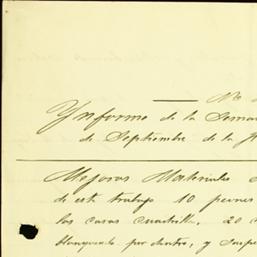 No
Ynforme de la Semana
de Septiembre de la
Mejoras Materiales
de este trabajo 10 peones
las casas cuadrilla. 20
blanqueado por dentro, y